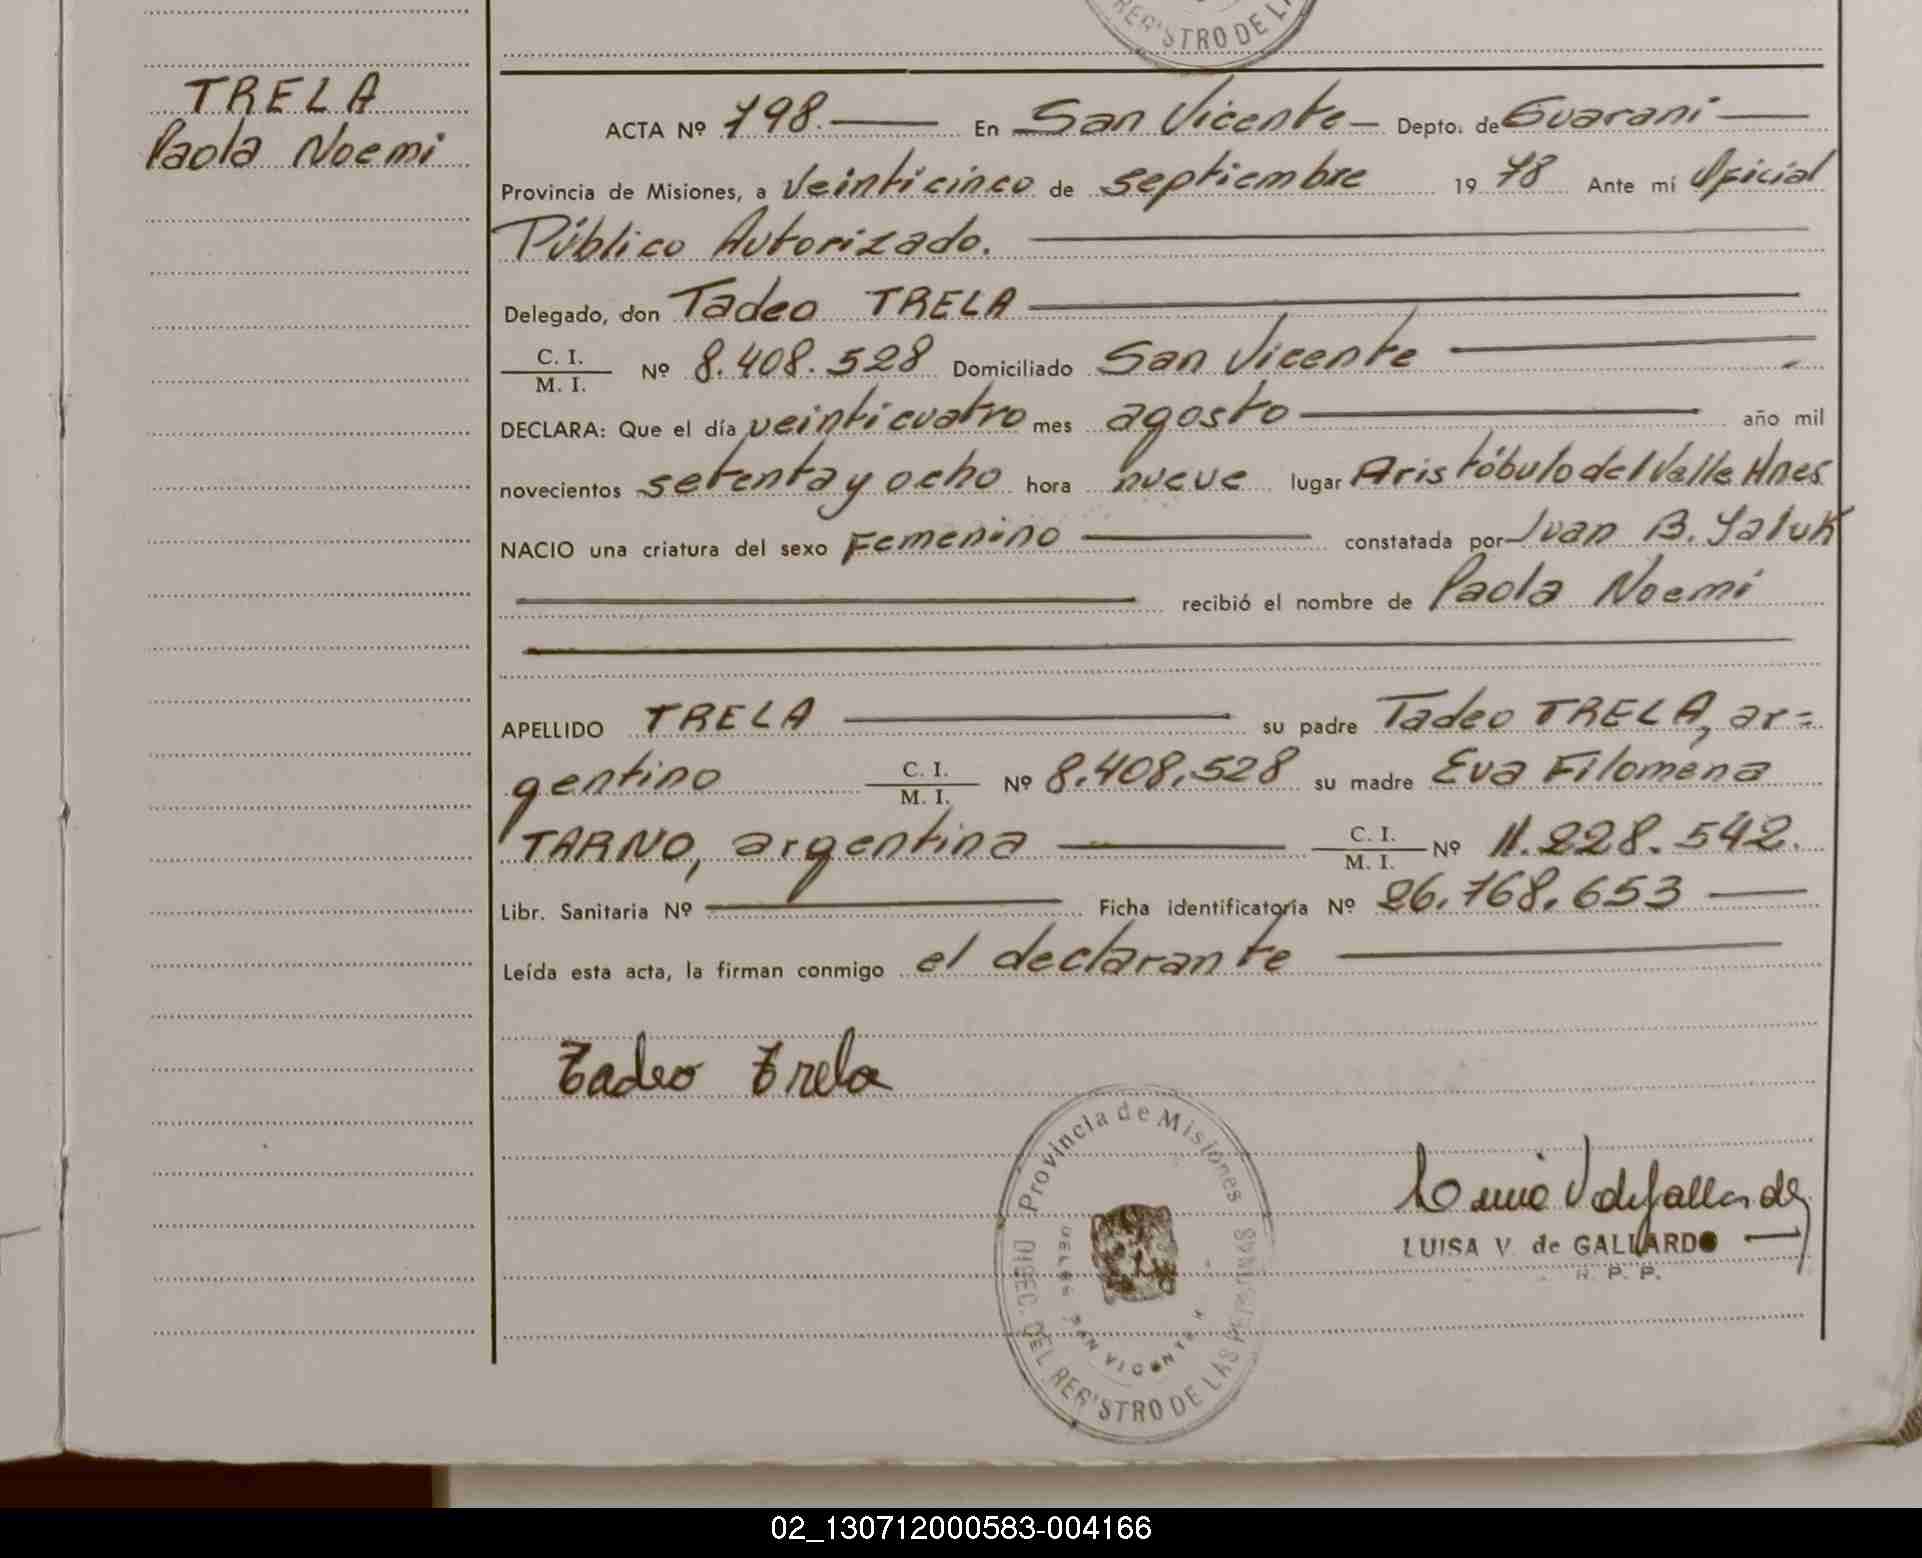 REGISTRO DE LA
TRELA
Paola Noemi
ACTA Nº 798.— En San Vicente — Depto. de Guaraní —
Provincia de Misiones, a veinticinco de septiembre 19 78 Ante mí Oficial
Público Autorizado.
Delegado, don Tadeo TRELA
C. I.
M. I. Nº 8.408.528 Domiciliado San Vicente
DECLARA: Que el día veinticuatro mes agosto año mil
novecientos setenta y ocho hora nueve lugar Aristóbulo del Valle Mnes
NACIO una criatura del sexo Femenino constatada por Juan B. Yaluk
recibió el nombre de Paola Noemi
APELLIDO TRELA su padre Tadeo TRELA, ar=
gentino C. I. / M. I. Nº 8.408.528 su madre Eva Filomena
TARNO, argentina C. I. / M. I. Nº 11.228.542.
Libr. Sanitaria Nº Ficha identificatoria Nº 26.768.653
Leída esta acta, la firman conmigo el declarante
Tadeo Trela
Provincia de Misiones
DIREC. DEL REGISTRO DE LAS PERSONAS
SAN VICENTE
LUISA V. de GALLARDO
R. P. P.
02_130712000583-004166